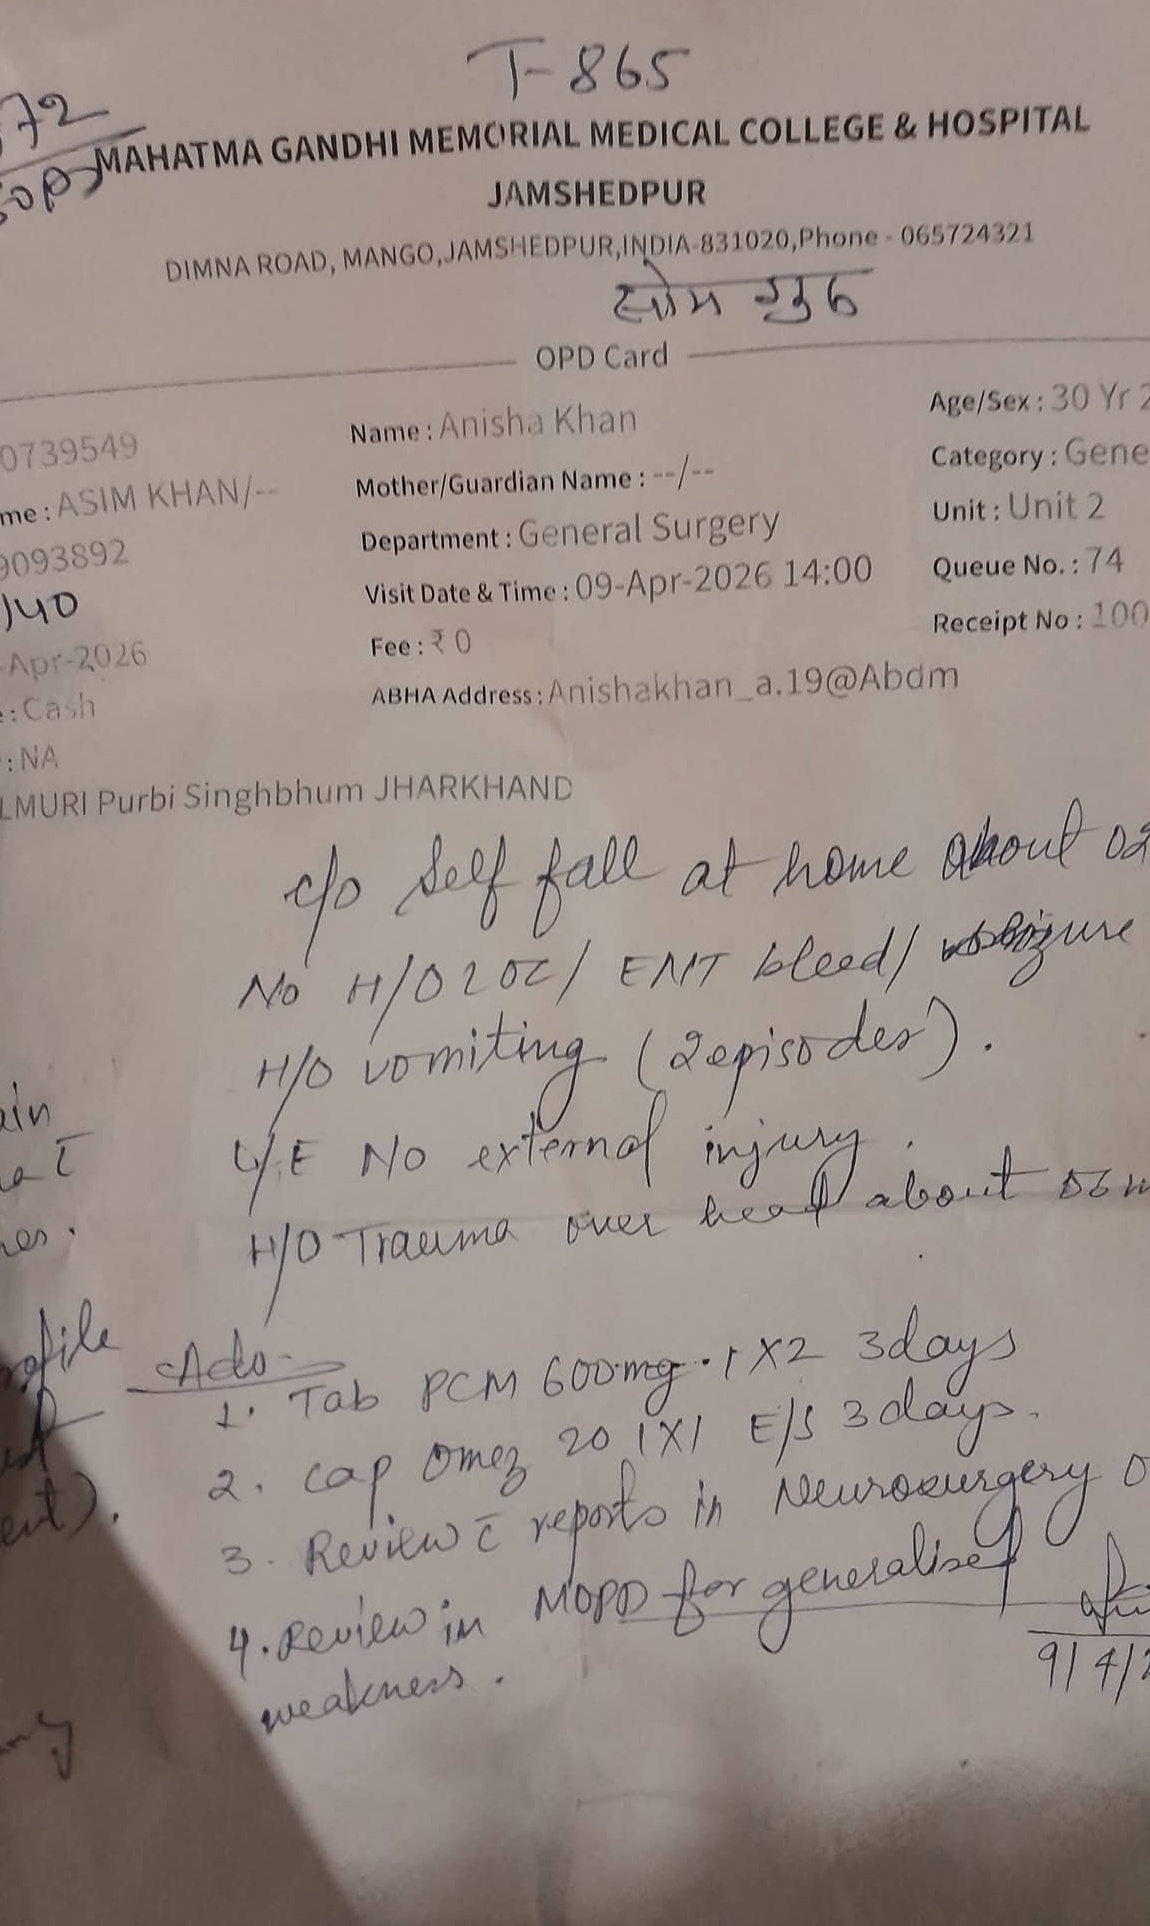 T-865
72
MAHATMA GANDHI MEMORIAL MEDICAL COLLEGE & HOSPITAL
JAMSHEDPUR
DIMNA ROAD, MANGO,JAMSHEDPUR,INDIA-831020,Phone - 065724321
सोम गुरु
OPD Card
0739549 Name : Anisha Khan Age/Sex : 30 Yr 2
me : ASIM KHAN/-- Mother/Guardian Name : --/-- Category : Gene
9093892 Department : General Surgery Unit : Unit 2
140 Visit Date & Time : 09-Apr-2026 14:00 Queue No. : 74
-Apr-2026 Fee : ₹ 0 Receipt No : 100
: Cash ABHA Address : Anishakhan_a.19@Abdm
: NA
LMURI Purbi Singhbhum JHARKHAND
c/o Self fall at home about 02
No H/O LOC/ ENT bleed/ seizure
H/O vomiting (2 episodes).
ain
L/E No external injury.
H/O Trauma over head about 06
ofile
Adv-
1. Tab PCM 600mg 1X2 3days
2. Cap Omez 20 1X1 E/S 3days.
ent).
3. Review c̄ reports in Neurosurgery O
4. Review in MOPD for generalised
weakness.
9/4/2